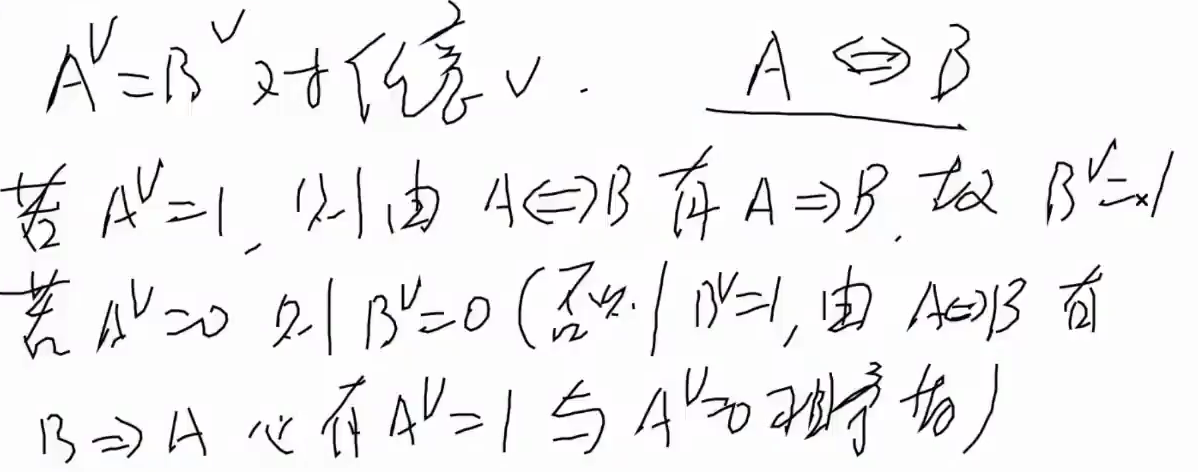 A^V=B^V 对任意 V. A⇔B
若 A^V=1, 则由 A⇔B 有 A⇒B. 故 B^V=1
若 A^V=0 则 B^V=0 (否则 B^V=1, 由 A⇔B 有
B⇒A 必有 A^V=1 与 A^V=0 矛盾)